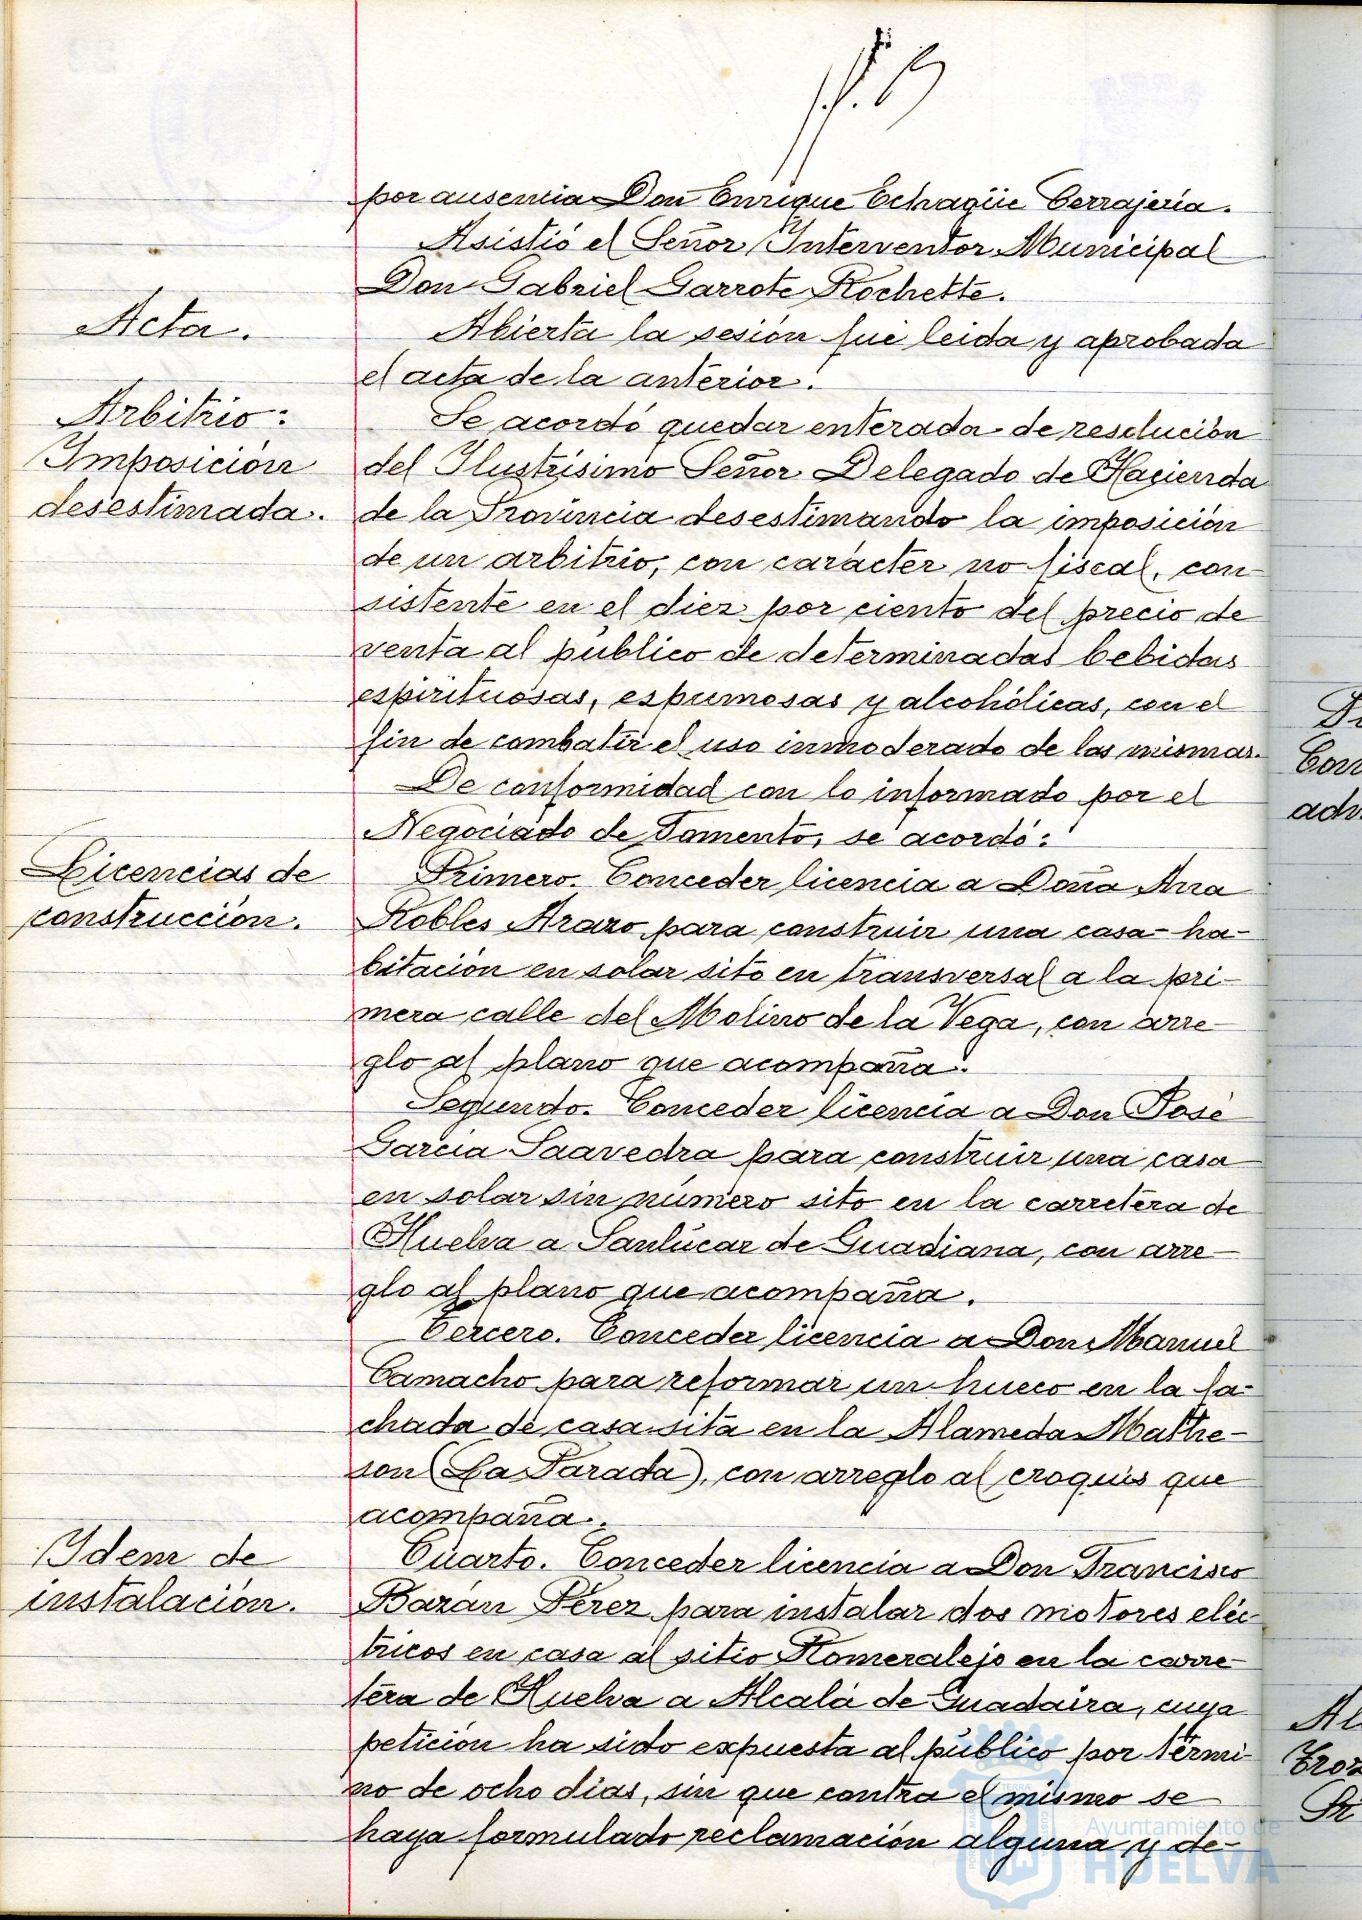 por ausencia Don Enrique Echagüe Cerrajería.
Asistió el Señor Interventor Municipal
Don Gabriel Garrote Rochette.
Acta.
Abierta la sesión fué leida y aprobada
el acta de la anterior.
Arbitrio:
Imposición
desestimada.
Se acordó quedar enterada de resolución
del Ilustrísimo Señor Delegado de Hacienda
de la Provincia desestimando la imposición
de un arbitrio, con carácter no fiscal, con-
sistente en el diez por ciento del precio de
venta al público de determinadas bebidas
espirituosas, espumosas y alcohólicas, con el
fin de combatir el uso inmoderado de las mismas.
De conformidad con lo informado por el
Negociado de Fomento, se acordó:
Licencias de
construcción.
Primero. Conceder licencia a Doña Ana
Robles para construir una casa-ha-
bitación en solar sito en transversal a la pri-
mera calle del Molino de la Vega, con arre-
glo al plano que acompaña.
Segundo. Conceder licencia a Don José
García Saavedra para construir una casa
en solar sin número sito en la carretera de
Huelva a Sanlúcar de Guadiana, con arre-
glo al plano que acompaña.
Tercero. Conceder licencia a Don Manuel
Camacho para reformar un hueco en la fa-
chada de casa sita en la Alameda Mathe-
son (La Parada), con arreglo al croquis que
acompaña.
Idem de
instalación.
Cuarto. Conceder licencia a Don Francisco
Bazán Pérez para instalar dos motores eléc-
tricos en casa al sitio Romeralejo en la carre-
tera de Huelva a Alcalá de Guadaira, cuya
petición ha sido expuesta al público por térmi-
no de ocho dias, sin que contra el mismo se
haya formulado reclamación alguna y de-
Ayuntamiento de
HUELVA